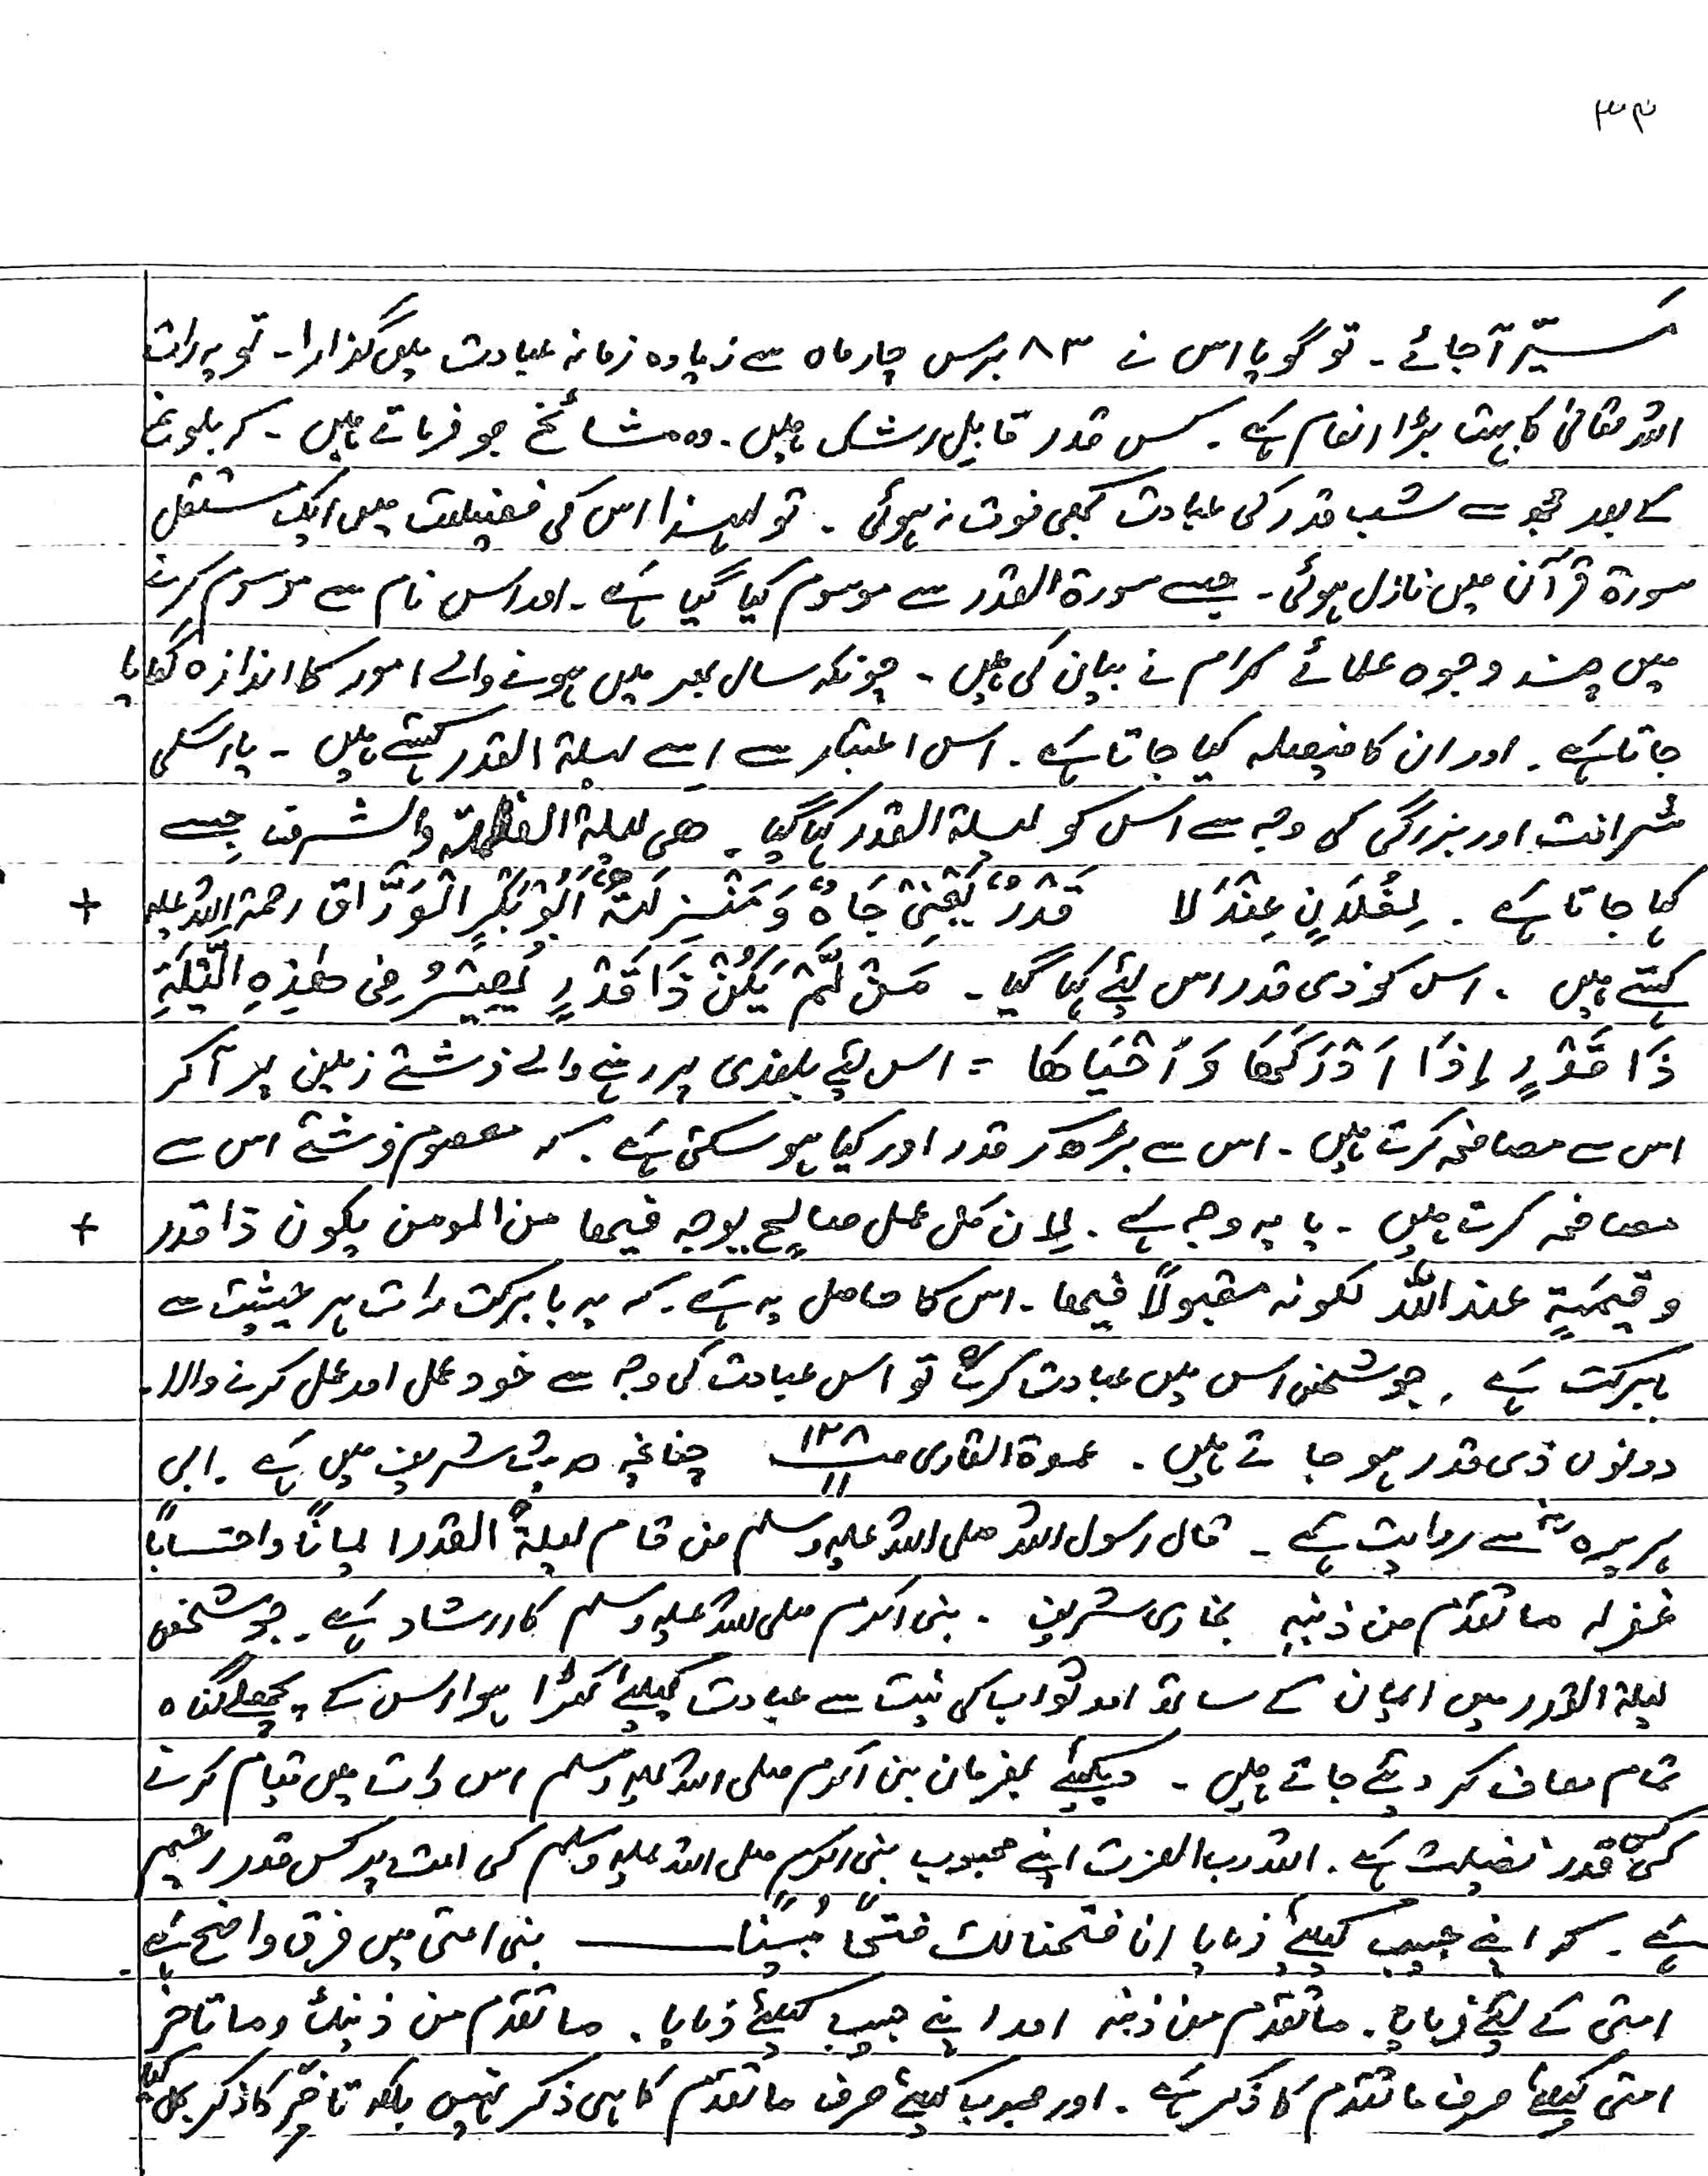 ۳۴
میسّر آجائے ۔ تو گویا اس نے ۸۳ برس چار ماہ سے زیادہ زمانہ عبادت میں گذارا ۔ تو یہ رات
اللہ تعالیٰ کا بہت بڑا انعام ہے ۔ کس قدر قابلِ رشک ہیں ۔ وہ مشائخ جو فرماتے ہیں ۔ کہ بلوغ
کے بعد مجھ سے شب قدر کی عبادت کبھی فوت نہ ہوئی ۔ تو لہذا اس کی فضیلت میں ایک مستقل
سورۃ قرآن میں نازل ہوئی ۔ جسے سورۃ القدر سے موسوم کیا گیا ہے ۔ اور اس نام سے موسوم کرنے
میں چند وجوہ علمائے کرام نے بیان کی ہیں ۔ چونکہ سال بھر میں ہونے والے امور کا اندازہ لگایا
جاتا ہے ۔ اور ان کا فیصلہ کیا جاتا ہے ۔ اس اعتبار سے اسے لیلۃ القدر کہتے ہیں ۔ یا اسکی
شرافت اور بزرگی کی وجہ سے اس کو لیلۃ القدر کہا گیا ۔ ھی لیلۃ العظمۃ والشرف جیسے
کہا جاتا ہے ۔ لِفُلَانٍ عِنْدَ لَا قَدْرٌ یَعْنِیْ جَاہٌ وَ مَنْزِلَۃٌ اَبُوْبَکْرِ الْوَرَّاق رحمۃ اللہ علیہ +
کہتے ہیں ۔ اس کو ذی قدر اس لئے کہا گیا ۔ مَنْ لَّمْ یَکُنْ ذَا قَدْرٍ یُصِیْرُ فِی ھٰذِہِ الَّیْلَۃِ
ذَا قَدْرٍ اِذَا اَدْرَکَھَا وَ اَحْیَاھَا = اس لئے بلندی پر رہنے والے فرشتے زمین پر آکر
اس سے مصافحہ کرتے ہیں ۔ اس سے بڑھ کر قدر اور کیا ہو سکتی ہے ۔ کہ معصوم فرشتے اس سے
مصافحہ کرتے ہیں ۔ یا یہ وجہ ہے ۔ لِان کل عمل صالحٍ یوجہ فیھا من المومن یکون ذا قدر +
و قیمَۃٍ عند اللہ لکونہ مقبولاً فیھا ۔ اس کا حاصل یہ ہے ۔ کہ یہ بابرکت رات ہر حیثیت سے
بابرکت ہے ۔ جو شخص اس میں عبادت کرے گا تو اس عبادت کی وجہ سے خود عمل اور عمل کرنے والا ۔
دونوں ذی قدر ہو جاتے ہیں ۔ عمدۃ القاری صـ ۱۲۸ / ۱۱ چنانچہ حدیث شریف میں ہے ۔ ابی
ہریرہ رضؓ سے روایت ہے ۔ قال رسول اللہ صلی اللہ علیہ وسلم من قام لیلۃَ القدر ایماناً واحتساباً
غفر لہ ما تقدّم من ذنبہٖ بخاری شریف ۔ نبی اکرم صلی اللہ علیہ وسلم کا ارشاد ہے ۔ جو شخص
لیلۃ القدر میں ایمان کے ساتھ اور ثواب کی نیت سے عبادت کیلئے کھڑا ہوا اس کے پچھلے گناہ
تمام معاف کر دیئے جاتے ہیں ۔ دیکھئے بفرمان نبی اکرم صلی اللہ علیہ وسلم اس رات میں قیام کرنے
کی کس قدر فضیلت ہے ۔ اللہ رب العزت اپنے محبوب نبی اکرم صلی اللہ علیہ وسلم کی امت پر کس قدر رحیم
ہے ۔ کہ اپنے حبیب کیلئے فرمایا انا فتحنا لک فتحًا مُبینًا ــــــ نبی امتی میں فرق واضح ہے ۔
امتی کے لئے فرمایا ۔ ما تقدم من ذنبہ اور اپنے حبیب کیلئے فرمایا ۔ ما تقدّم من ذنبک وما تاخر
امتی کیلئے صرف ما تقدم کا ذکر ہے ۔ اور محبوب کیلئے صرف ما تقدّم کا ہی ذکر نہیں بلکہ تاخّر کا ذکر بھی کیا